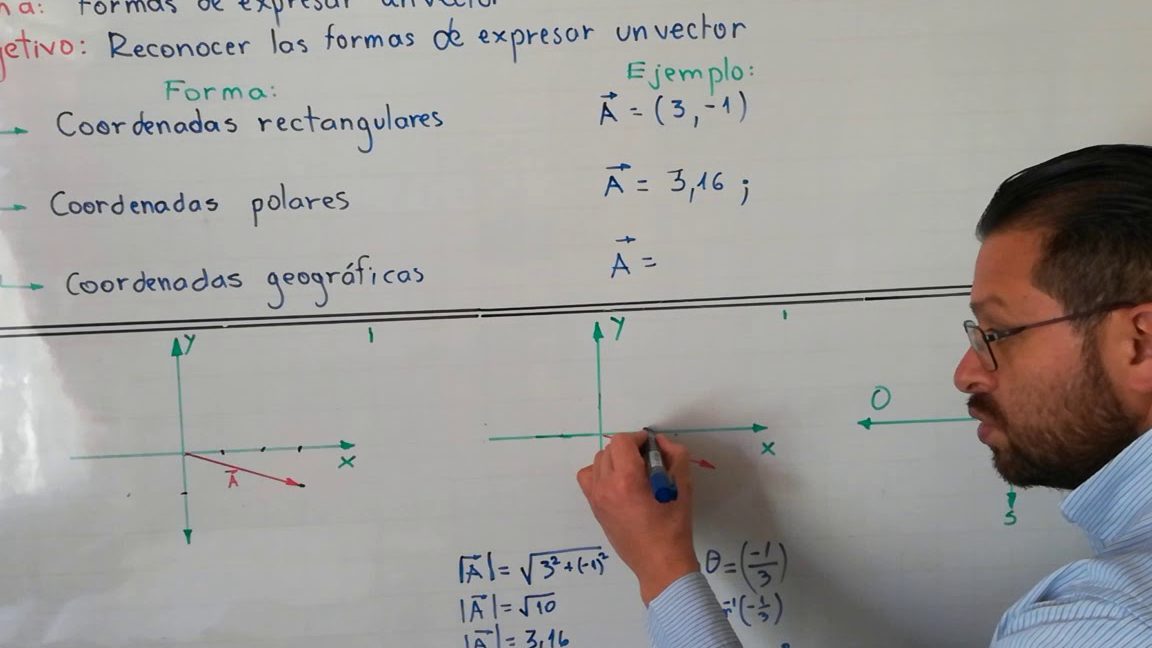 formas de expresar un vector
etivo: Reconocer las formas de expresar un vector
Forma:
Ejemplo:
Coordenadas rectangulares
A⃗ = (3, -1)
Coordenadas polares
A⃗ = 3,16 ;
Coordenadas geográficas
A⃗ =
y
x
A⃗
y
x
O
S
|A⃗| = √3² + (-1)²
|A⃗| = √10
|A⃗| = 3,16
θ = (-1/3)
(-1/3)